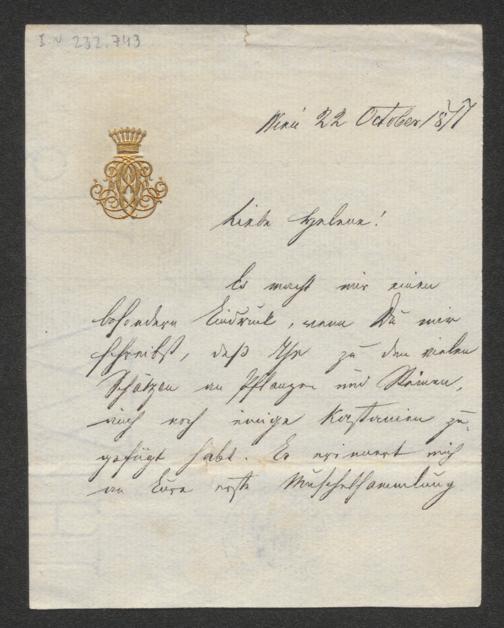 I. N 232.743
Wien 22 October 1877
Liebe Helene!
Es macht mir einen
besondern Eindruck, wenn Du mir
schreibst, daß Ihr zu den vielen
Schätzen an Pflanzen und Steinen,
auch noch einige Kastanien zu-
gefügt habt. Es erinnert mich
an Eure erste Muschelsammlung